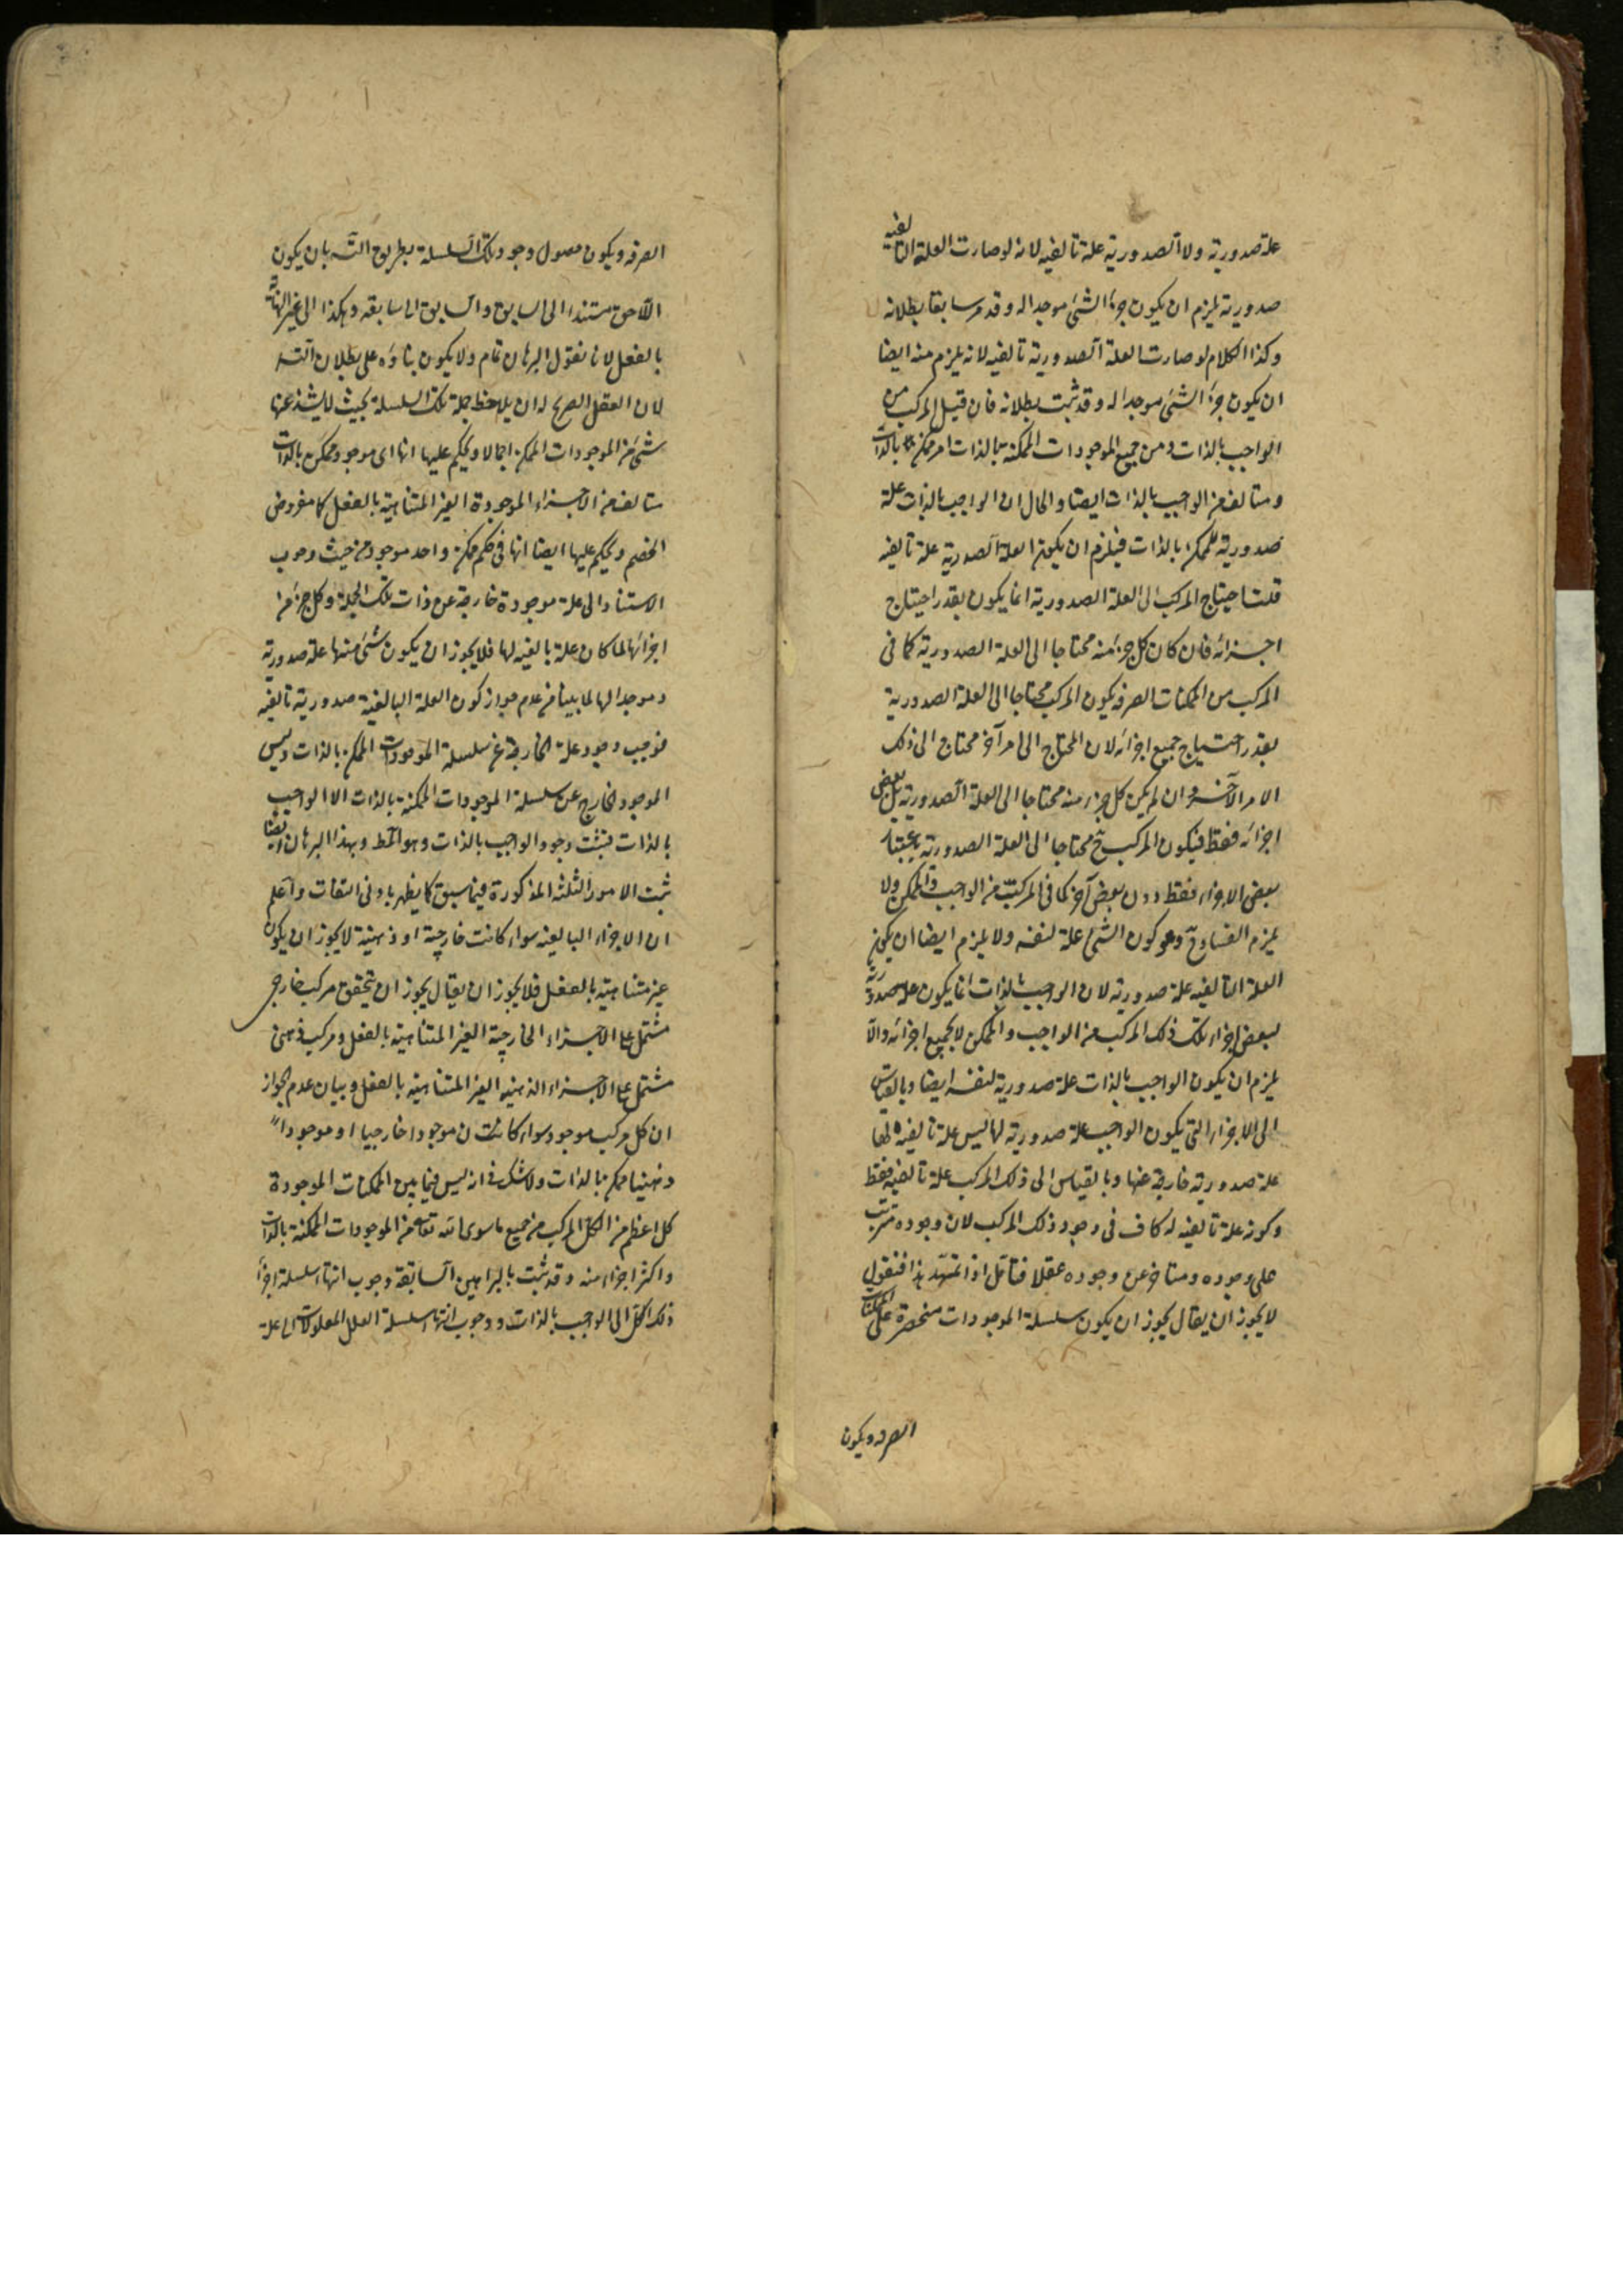 علة صدورية ولا الصدورية علة تأليفية لانه لو صارت العلة التاليفية
صدورية يلزم ان يكون جزء الشئ موجدا له وقد مر سابقا بطلانه
وكذا الكلام لو صارت العلة الصدورية تاليفية لانه يلزم منه ايضا
ان يكون جزء الشئ موجدا له وقد ثبت بطلانه فان قيل المركب من
الواجب بالذات ومن جميع الموجودات الممكنة بالذات امر ممكن بالذات
ومتالف من الواجب بالذات ايضا والحال ان الواجب بالذات علة
صدورية للممكن بالذات فيلزم ان يكون العلة الصدورية علة تاليفية
قلت احتياج المركب الى العلة الصدورية انما يكون بقدر احتياج
اجزائه فان كان كل جزء منه محتاجا الى العلة الصدورية كما فى
المركب من الممكنات الصرفه يكون المركب محتاجا الى العلة الصدورية
بقدر احتياج جميع اجزائه لان المحتاج الى امر آخر محتاج الى ذلك
الامر الآخر وان لم يكن كل جزء منه محتاجا الى العلة الصدورية بل بعض
اجزائه فقط فيكون المركب ح محتاجا الى العلة الصدورية باعتبار
بعض الاجزاء فقط دون بعض آخر كما فى المركب من الواجب والممكن ولا
يلزم الفساد ح وهو كون الشئ علة لنفسه ولا يلزم ايضا ان يكون
العلة التاليفيه علة صدورية لان الواجب بالذات انما يكون علة صدورية
لبعض اجزاء ذلك المركب من الواجب والممكن لا لجميع اجزائه والا
يلزم ان يكون الواجب بالذات علة صدورية لنفسه ايضا وبالقياس
الى الاجزاء التى يكون الواجب علة صدورية لها ليس علة تاليفية لها
علة صدورية خارجة عنها وبالقياس الى ذلك المركب علة تاليفيه فقط
وكونه علة تاليفيه له كاف فى وجود ذلك المركب لان وجوده مترتب
على وجوده ومتاخر عن وجوده عقلا فتامل اذا تمهد هذا فنقول
لا يجوز ان يقال يجوز ان يكون سلسلة الموجودات منحصرة على الممكنات
الصرفه ويكون
الصرفه ويكون حصول وجود تلك السلسلة بطريق التسه بان يكون
اللاحق مستندا الى السابق والسابق الى سابقه وهكذا الى غير النهاية
بالفعل لانا نقول البرهان تمام ولا يكون بناؤه على بطلان التسه
لان العقل الصريح له ان يلاحظ جملة تلك السلسلة بحيث لا يشذ عنها
شئ من الموجودات الممكنة اجمالا ويحكم عليها انها اى موجود ممكن بالذات
متالف من الاجزاء الموجودة الغير المتناهية بالفعل كما مفروض
الخصم ويحكم عليها ايضا انها فى حكم ممكن واحد موجود من حيث وجوب
الاستناد الى علة موجودة خارجة عن ذات تلك الجملة وكل جزء من
اجزائها لما كان علة تاليفيه لها فلا يجوز ان يكون شئ منها علة صدورية
وموجدا لها لما بينا من عدم جواز كون العلة التاليفية صدورية تاليفيه
فوجب وجود علة الخارجة عن سلسلة الموجودات الممكن بالذات وليس
الموجود الخارج عن سلسلة الموجودات الممكنة بالذات الا الواجب
بالذات فثبت وجود الواجب بالذات وهو المط وبهذا البرهان ايضا
ثبت الامور الثلثة المذكورة فيما سبق كما يظهر بادنى التفات واعلم
ان الاجزاء التاليفيه سواء كانت خارجية او ذهنية لا يجوز ان يكون
غير متناهية بالفعل فلا يجوز ان يقال يجوز ان يتحقق مركب خارجى
مشتمل على الاجزاء الخارجية الغير المتناهية بالفعل ومركب ذهنى
مشتمل على الاجزاء الذهنيه الغير المتناهيه بالفعل وبيان عدم الجواز
ان كل مركب موجود سواء كان موجودا خارجيا او موجودا
ذهنيا ممكن بالذات ولا شك فى انه ليس فيما بين الممكنات الموجودة
كل اعظم من الكل المركب من جميع ما سوى الله تعالى من الموجودات الممكنة بالذات
واكثر اجزاء منه وقد ثبت بالبراهين السابقة وجوب انتهاء سلسلة اجزاء
ذلك الكل الى الواجب بالذات ووجوب انتهاء سلسلة العلل المعلولات الى علة